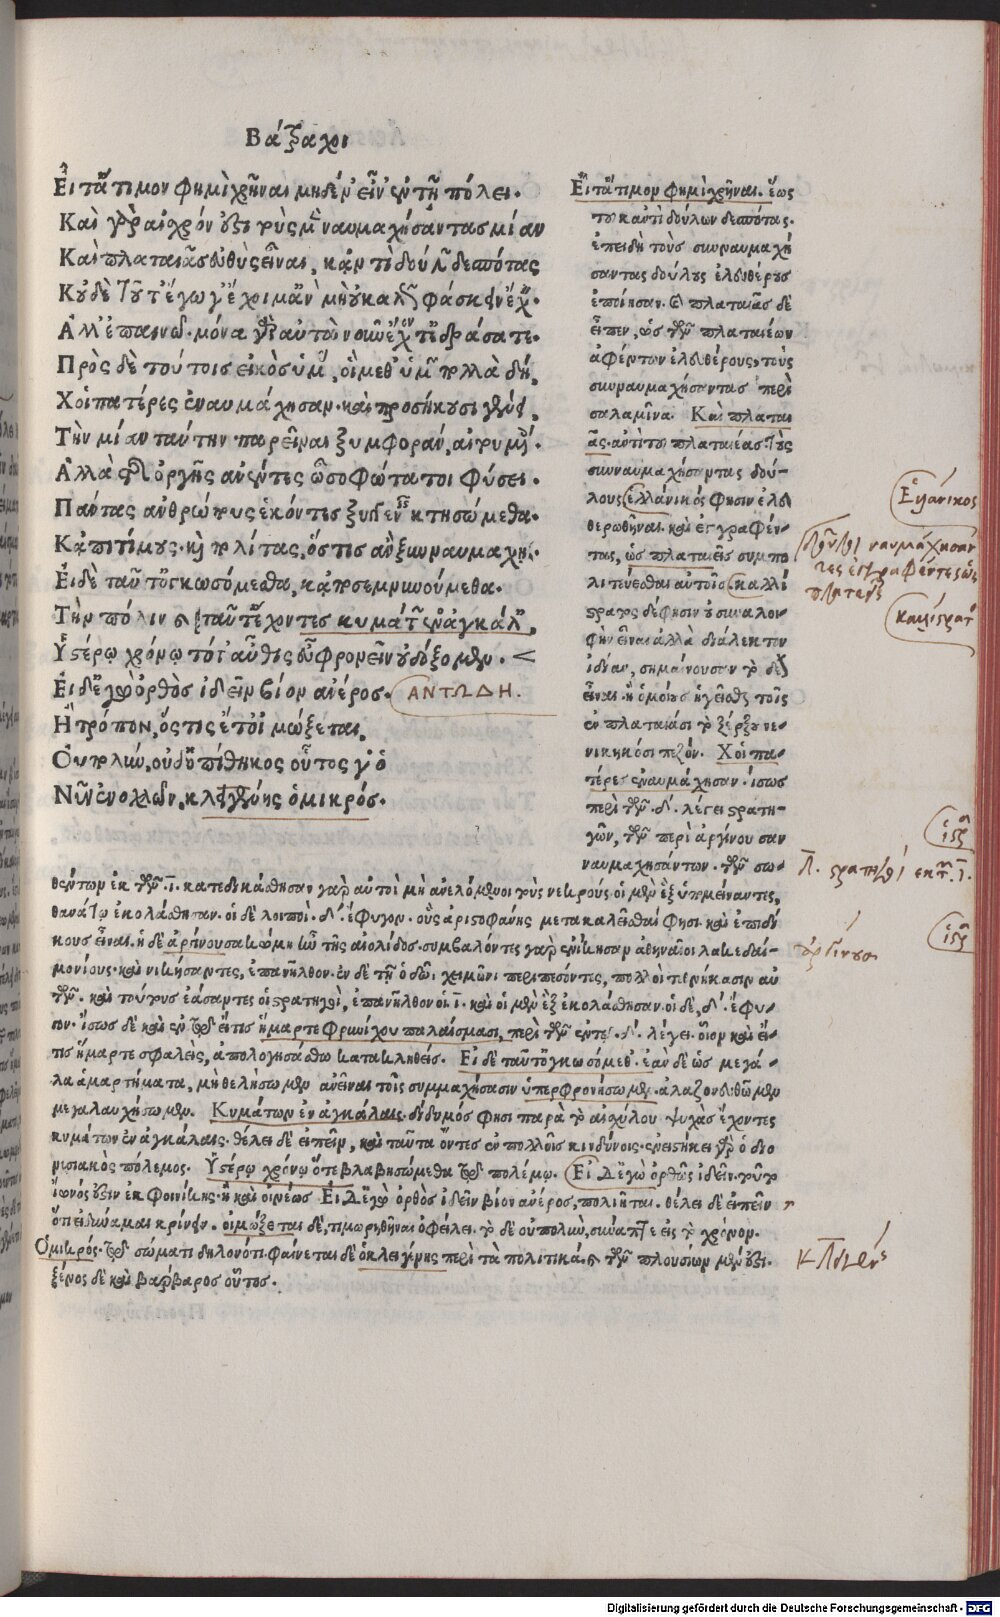 Βάτραχοι
Εἶτ' ἄτιμον φημὶ χρῆναι μηδέν' εἶν' ἐν τῇ πόλει.
Καὶ γὰρ αἰσχρόν ἐστι τοὺς μὲν ναυμαχήσαντας μίαν
Καὶ πλαταιᾶς εὐθὺς εἶναι, κἀντὶ δούλων δεσπότας
Κοὐδὲ ταῦτ' ἔγωγ' ἔχοιμ' ἂν μὴ οὐ καλῶς φάσκειν ἔχειν.
Ἀλλ' ἐπαινῶ. μόνα γὰρ αὐτὰ νοῦν ἔχοντ' ἐδράσατε.
Πρὸς δὲ τούτοις εἰκὸς ὑμᾶς, οἳ μεθ' ὑμῶν πολλὰ δὴ,
Χοἱ πατέρες ἐναυμάχησαν. καὶ προσήκουσι γένει,
Τὴν μίαν ταύτην παρεῖναι ξυμφορὰν, αἰτουμένοις.
Ἀλλὰ τῆς ὀργῆς ἀνέντες ὦ σοφώτατοι φύσει.
Πάντας ἀνθρώπους ἑκόντες ξυγγενεῖς κτησώμεθα.
Κἀπιτίμους. καὶ πολίτας, ὅστις ἂν ξυνναυμαχῇ.
Εἰ δὲ ταῦτ' ὀγκωσόμεσθα, κἀποσεμνυνούμεθα.
Τὴν πόλιν καὶ ταῦτ' ἔχοντες κυμάτων ἐν ἀγκάλαις,
Ὑστέρῳ χρόνῳ ποτ' αὖθις εὖ φρονεῖν οὐ δόξομεν.
Εἰ δ' ἐγὼ ὀρθὸς ἰδεῖν βίον ἀνέρος. ΑΝΤΩΔΗ.
Ἢ τρόπον, ὅστις ἔτ' οἰμώξεται,
Οὐ πολὺν, οὐδ' ὁ πίθηκος οὗτος γ' ὁ
Νῦν ἐνοχλῶν, κλειγένης ὁ μικρός.
Εἶτ' ἄτιμον φημὶ χρῆναι. ἕως
τοῦ κἀντὶ δούλων δεσπότας.
ἐπειδὴ τοὺς συνναυμαχή
σαντας δούλους ἐλευθέρους
ἐποίησαν. καὶ πλαταιᾶς δὲ
εἶπεν, ὡς τῶν πλαταιέων
ἀφέντων ἐλευθέρους, τοὺς
συνναυμαχήσαντας περὶ
σαλαμῖνα. Καὶ πλαται
ᾶς. ἀντὶ τοῦ πλαταιέας. τοὺς
συνναυμαχήσαντας δού-
λους ἑλλάνικός φησιν ἐλευ
θερωθῆναι. καὶ ἐγγραφέν-
τας, ὡς πλαταιεῖς συμπο
λιτεύεσθαι αὐτοῖς. καλλί
στρατος δέ φησιν
εἶναι ἀλλὰ διάλεκτον
ἰδίαν, σημαίνουσαν τὸ δεῖ
εἶναι. ἢ ὁμοίως ἡγεῖσθαι τοῖς
ἐν πλαταιαῖσι τὸ ξέρξου νε-
νικηκόσι πεζόν. Χοἱ πα-
τέρες ἐναυμάχησαν. ἴσως
περὶ τῶν. δ'. λέγει στρατη-
γῶν, τῶν περὶ ἀργίνουσαν
ναυμαχησάντων. τῶν σω-
θέντων ἐκ τῶν. ι. κατεδικάσθησαν γὰρ αὐτοὶ μὴ ἀνελόμενοι τοὺς νεκρούς. οἱ μὲν ἓξ ὑπομείναντες,
θανάτῳ ἐκολάσθησαν. οἱ δὲ λοιποὶ. δ'. ἔφυγον. οὓς ἀριστοφάνης μετακαλεῖσθαί φησι. καὶ ἐπιδί
κους εἶναι. ἡ δὲ ἀργίνουσα κώμη ἦν τῆς αἰολίδος. συμβαλόντες γὰρ ἐνίκησαν ἀθηναῖοι λακεδαι-
μονίους. καὶ νικήσαντες, ἐπανῆλθον. ἐν δὲ τῇ ὁδῷ. χειμῶνι περιπεσόντες, πολλοὶ
τῶν. καὶ τούτους ἐάσαντες οἱ στρατηγοὶ, ἐπανῆλθον οἱ ι. καὶ οἱ μὲν ἓξ ἐκολάσθησαν. οἱ δὲ, δ'. ἔφυ-
γον. ἴσως δὲ καὶ ἐν τῷ εἴ τις ἥμαρτε φρυνίχου παλαίσμασι, περὶ τῶν λέγει. οἷον καὶ εἴ-
τις ἥμαρτε σφαλεὶς, ἀπολογησάσθω κατακληθείς. Εἰ δὲ ταῦτ' ὀγκωσόμεθ'. ἐὰν δὲ ὡς μεγά-
λα ἁμαρτήματα, μὴ θελήσωμεν ἀνεῖναι τοῖς συμμαχήσασιν ὑπερφρονήσωμεν. ἀλαζονευθῶμεν
μεγαλαυχήσωμεν. Κυμάτων ἐν ἀγκάλαις. δίδυμός φησι παρὰ τὸ αἰσχύλου ψυχὰς ἔχοντες
κυμάτων ἐν ἀγκάλαις. θέλει δὲ εἰπεῖν, καὶ ταῦτα ὄντες ἐν πολλοῖς κινδύνοις. ἐνειστήκει γὰρ ὁ διο
νυσιακὸς πόλεμος. Ὑστέρῳ χρόνῳ ὅτε βλαβησώμεθα τῷ πολέμῳ. Εἰ Δ' ἐγὼ ὀρθῶς ἰδεῖν. τοῦτο
ἴωνός ἐστιν ἐκ φοινίκης. ἢ καὶ οἰνέως Εἰ Δ' ἐγὼ ὀρθὸς ἰδεῖν βίον ἀνέρος, πολιῆται. θέλει δὲ εἰπεῖν
ὅπερ δύναμαι κρίνειν. οἰμώξεται δὲ, τιμωρηθῆναι ὀφείλει. τὸ δὲ οὐ πολὺν, συνάπτεται εἰς τὸ χρόνον.
Ὁ μικρός. τῷ σώματι δηλονότι. φαίνεται δὲ ὁ κλειγένης περὶ τὰ πολιτικὰ. καὶ τῶν πλουσίων μέν ἐστι.
ξένος δὲ καὶ βάρβαρος οὗτος.
Ἑλλάνικος
δοῦλοι ναυμαχήσαν
τες ἐγγραφέντες ὡς
πλατεεῖς
καλλίστρατ
Δ. στρατηγοὶ ἐκ τ. ι.
ἀργίνουσα
κλειγένης
Digitalisierung gefördert durch die Deutsche Forschungsgemeinschaft - DFG